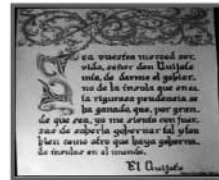 Sea vuestra merced ser-
vida, señor don Quijote
mío, de darme el gobier-
no de la ínsula que en es-
ta rigurosa pendencia se
ha ganado, que, por gran-
de que sea, yo me siento con fuer-
zas de saberla gobernar tal y tan
bien como otro que haya goberna-
do ínsulas en el mundo.
El Quijote